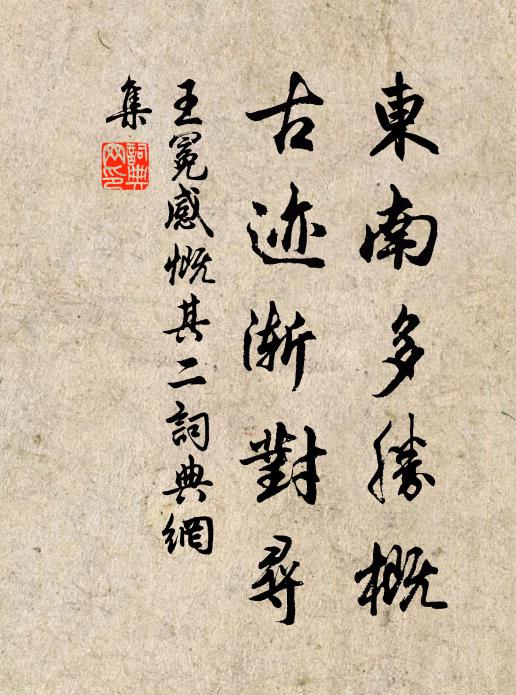 東南多勝概
古迹漸對尋
王冕感慨其二詞典網
集
詞典網印